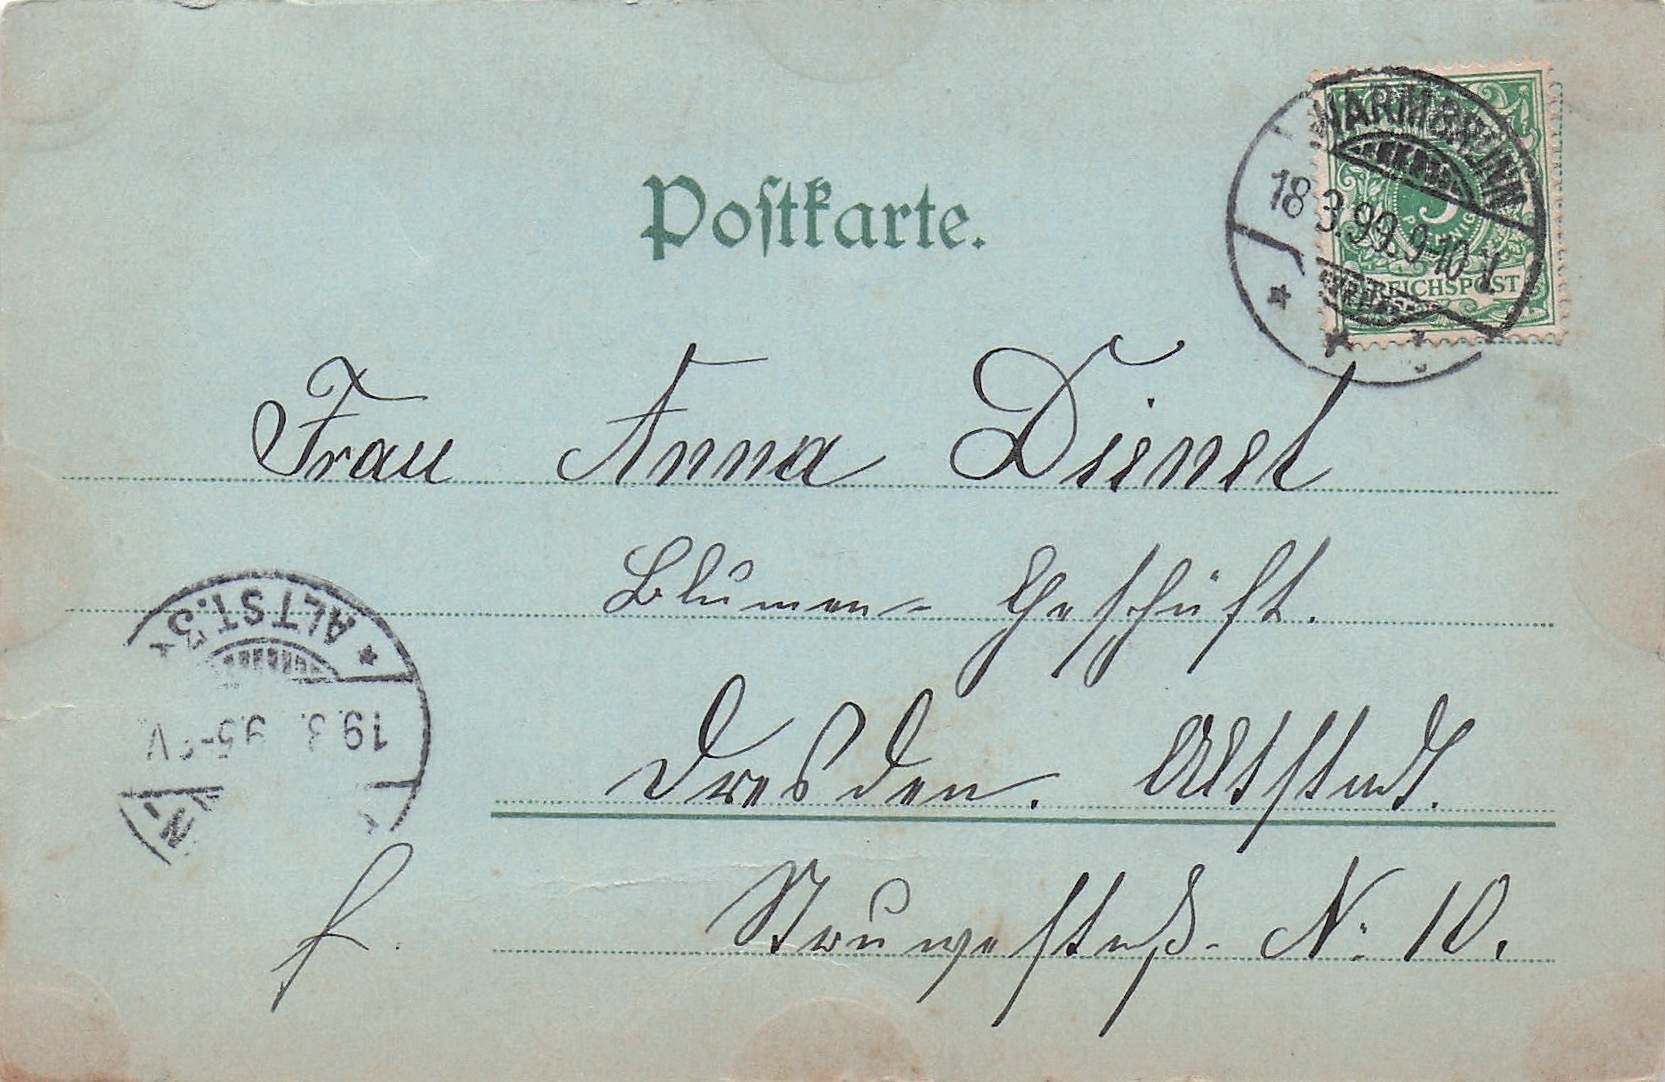 Postkarte.
WARMBRUNN
18 3.99.9-10 V
5
PFENNIG
REICHSPOST
Frau Anna Dienel
Blumen- Geschäft.
ALTST. 3
19.3. 95- V
Dresden. Altstadt.
Struvestraß. N: 10.